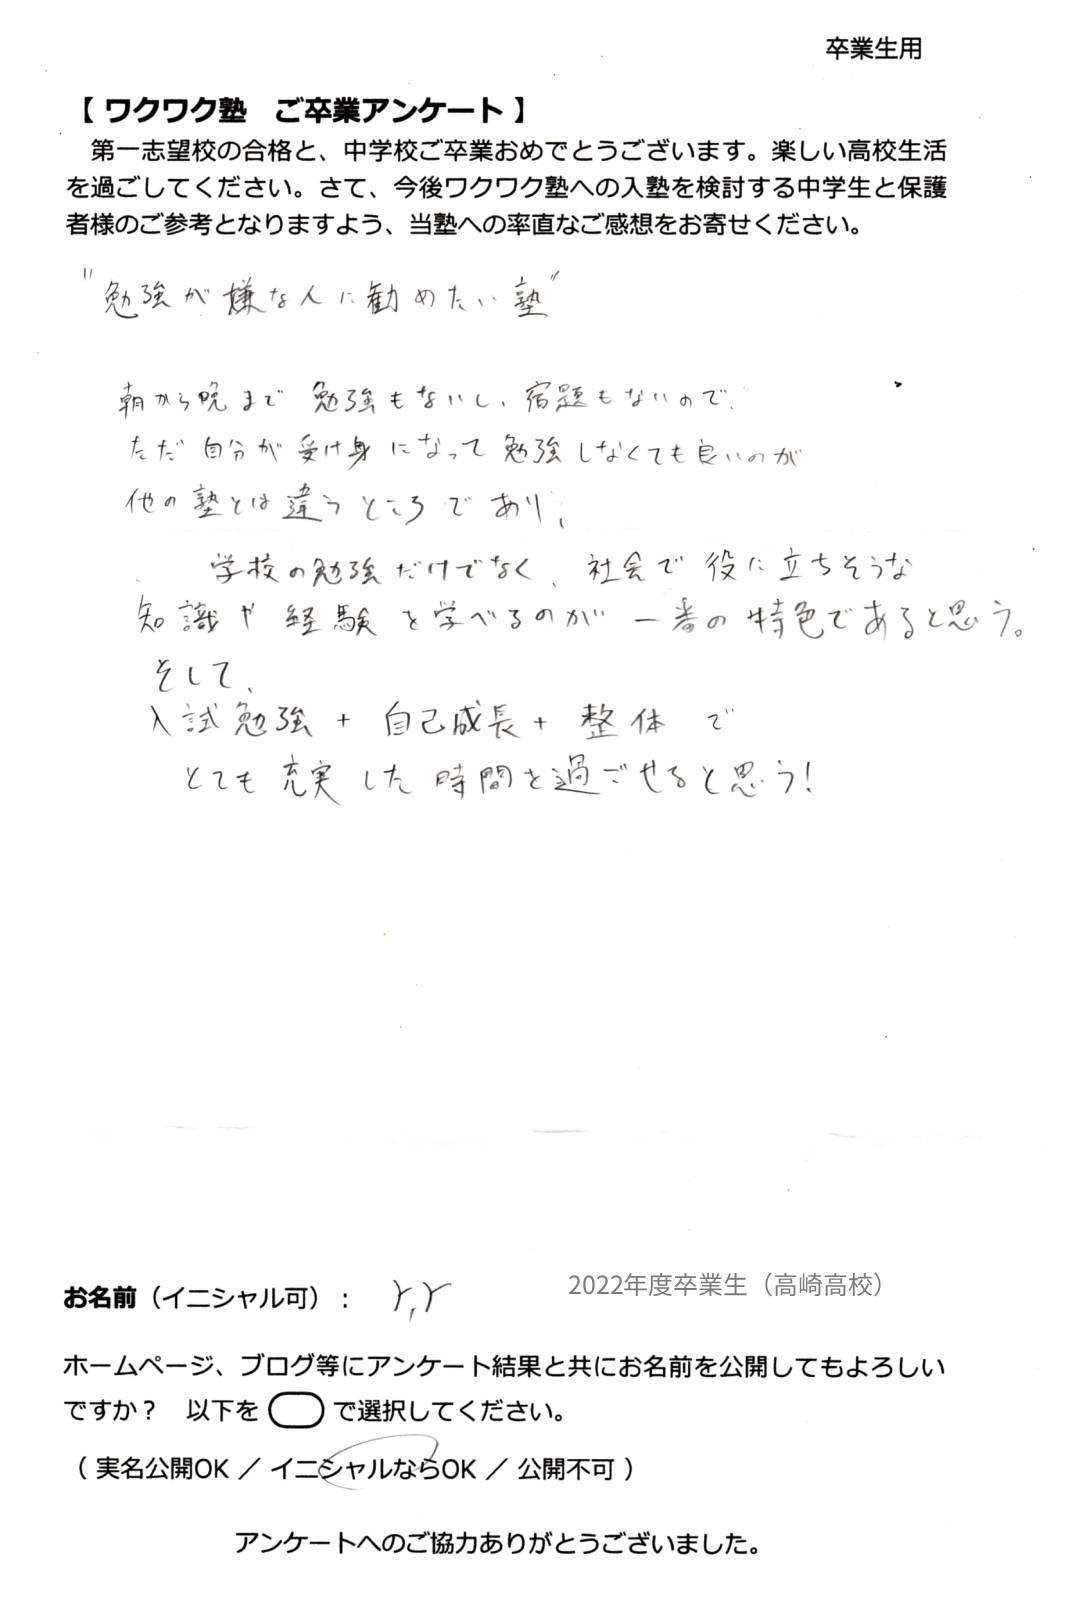 卒業生用
【 ワクワク塾　ご卒業アンケート 】
第一志望校の合格と、中学校ご卒業おめでとうございます。楽しい高校生活
を過ごしてください。さて、今後ワクワク塾への入塾を検討する中学生と保護
者様のご参考となりますよう、当塾への率直なご感想をお寄せください。
"勉強が嫌な人に勧めたい塾"
朝から晩まで勉強もないし、宿題もないので、
ただ自分が受け身になって勉強しなくても良いのが
他の塾とは違うところであり、
学校の勉強だけでなく、社会で役に立ちそうな
知識や経験を学べるのが一番の特色であると思う。
そして、
入試勉強 + 自己成長 + 整体 で
とても充実した時間を過ごせると思う!
お名前（イニシャル可）： Y,Y 2022年度卒業生（高崎高校）
ホームページ、ブログ等にアンケート結果と共にお名前を公開してもよろしい
ですか？　以下を　で選択してください。
（ 実名公開OK ／ イニシャルならOK ／ 公開不可 ）
アンケートへのご協力ありがとうございました。